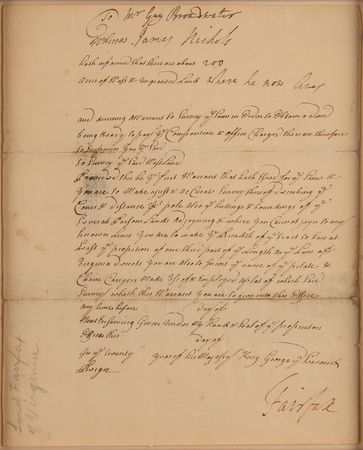 To Mr Guy Broadwater
Whereas James Nichols
hath informed that there are about 200
Acres of Wast & ungranted Land where he now lives
and desiring a Warrant to Survey ye same in Order to Obtain a Deed
being Ready to pay ye Composition & office Charges these are therefore
to Impower you ye said
to Survey ye said Wasteland
Provided this be ye first Warrant that hath Issued for ye same &
you are to Make a Just & accurate Survey thereof describing ye
Course & distance pr pole also ye buttings & boundings of ye
Several Persons Lands adjoyning & where you Cannot joyn to any
known Lines you are to make ye Breadth of ye tract to bear at
Least ye proportion of one third part of ye Length as ye Law of
Virginia directs you are also to Insert ye names of ye pilots &
Chain Carryers Made use of & Employed a plat of which said
Survey with this Warrant you are to give into this Office
any time before day of
Next Ensuing Given under my hand & Seal of ye proprietors
Office this day of
In ye twenty year of his Majesty King George ye Second
Reign
Fairfax
Lord Fairfax
of Virginia